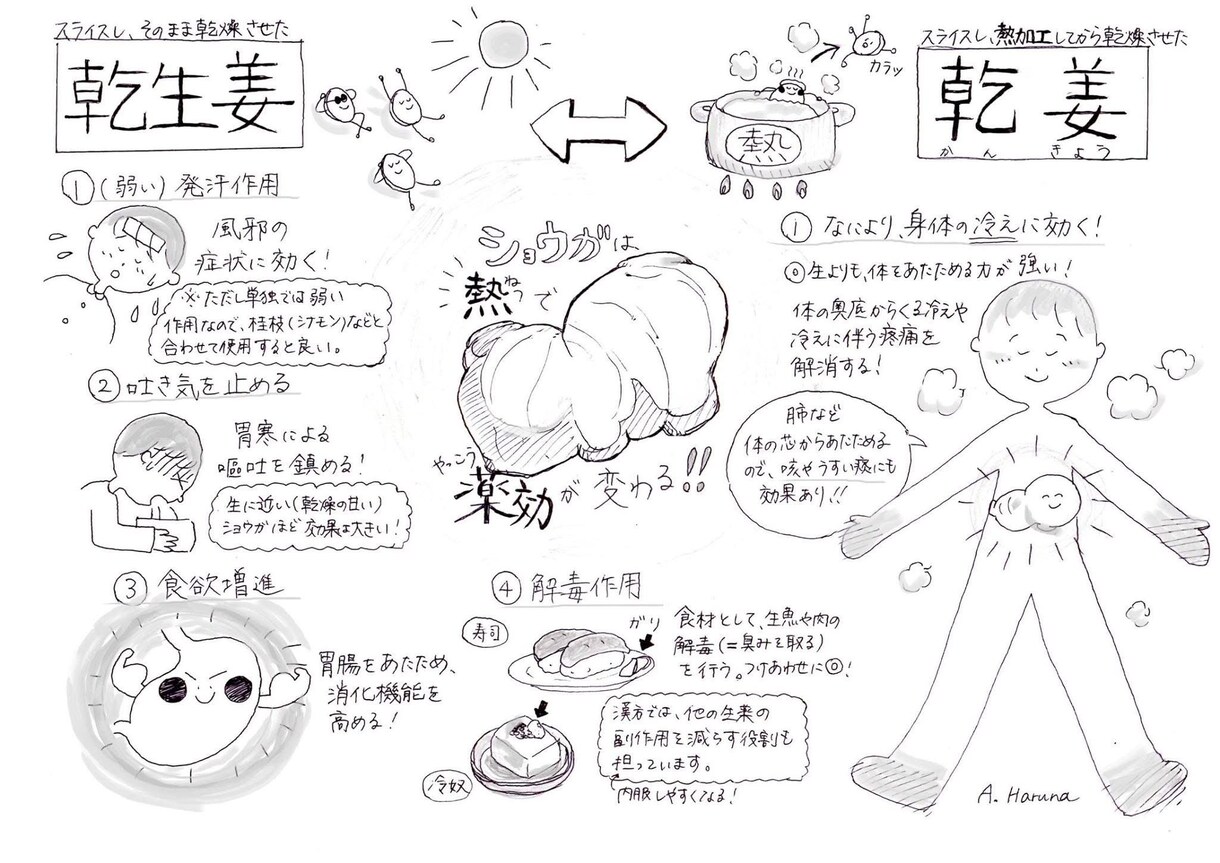 スライスし、そのまま乾燥させた
乾生姜
スライスし、熱加工してから乾燥させた
乾姜
かんきょう
カラッ
熱
①(弱い)発汗作用
風邪の
症状に効く!
※ただし単独では弱い
作用なので、桂枝(シナモン)などと
合わせて使用すると良い。
②吐き気を止める
胃寒による
嘔吐を鎮める!
生に近い(乾燥の甘い)
ショウガほど効果は大きい!
③食欲増進
胃腸をあたため、
消化機能を
高める!
ショウガは
ねつ
熱で
やっこう
薬効が変わる!!
④解毒作用
寿司
ガリ
食材として、生魚や肉の
解毒(=臭みを取る)
を行う。つけあわせに◎!
冷奴
漢方では、他の生薬の
副作用を減らす役割も
担っています。
内服しやすくなる!
①なにより、身体の冷えに効く!
◎生よりも、体をあたためる力が強い!
体の奥底からくる冷えや
冷えに伴う疼痛を
解消する!
肺など
体の芯からあたためる
ので、咳やうすい痰にも
効果あり!!
A. Haruna